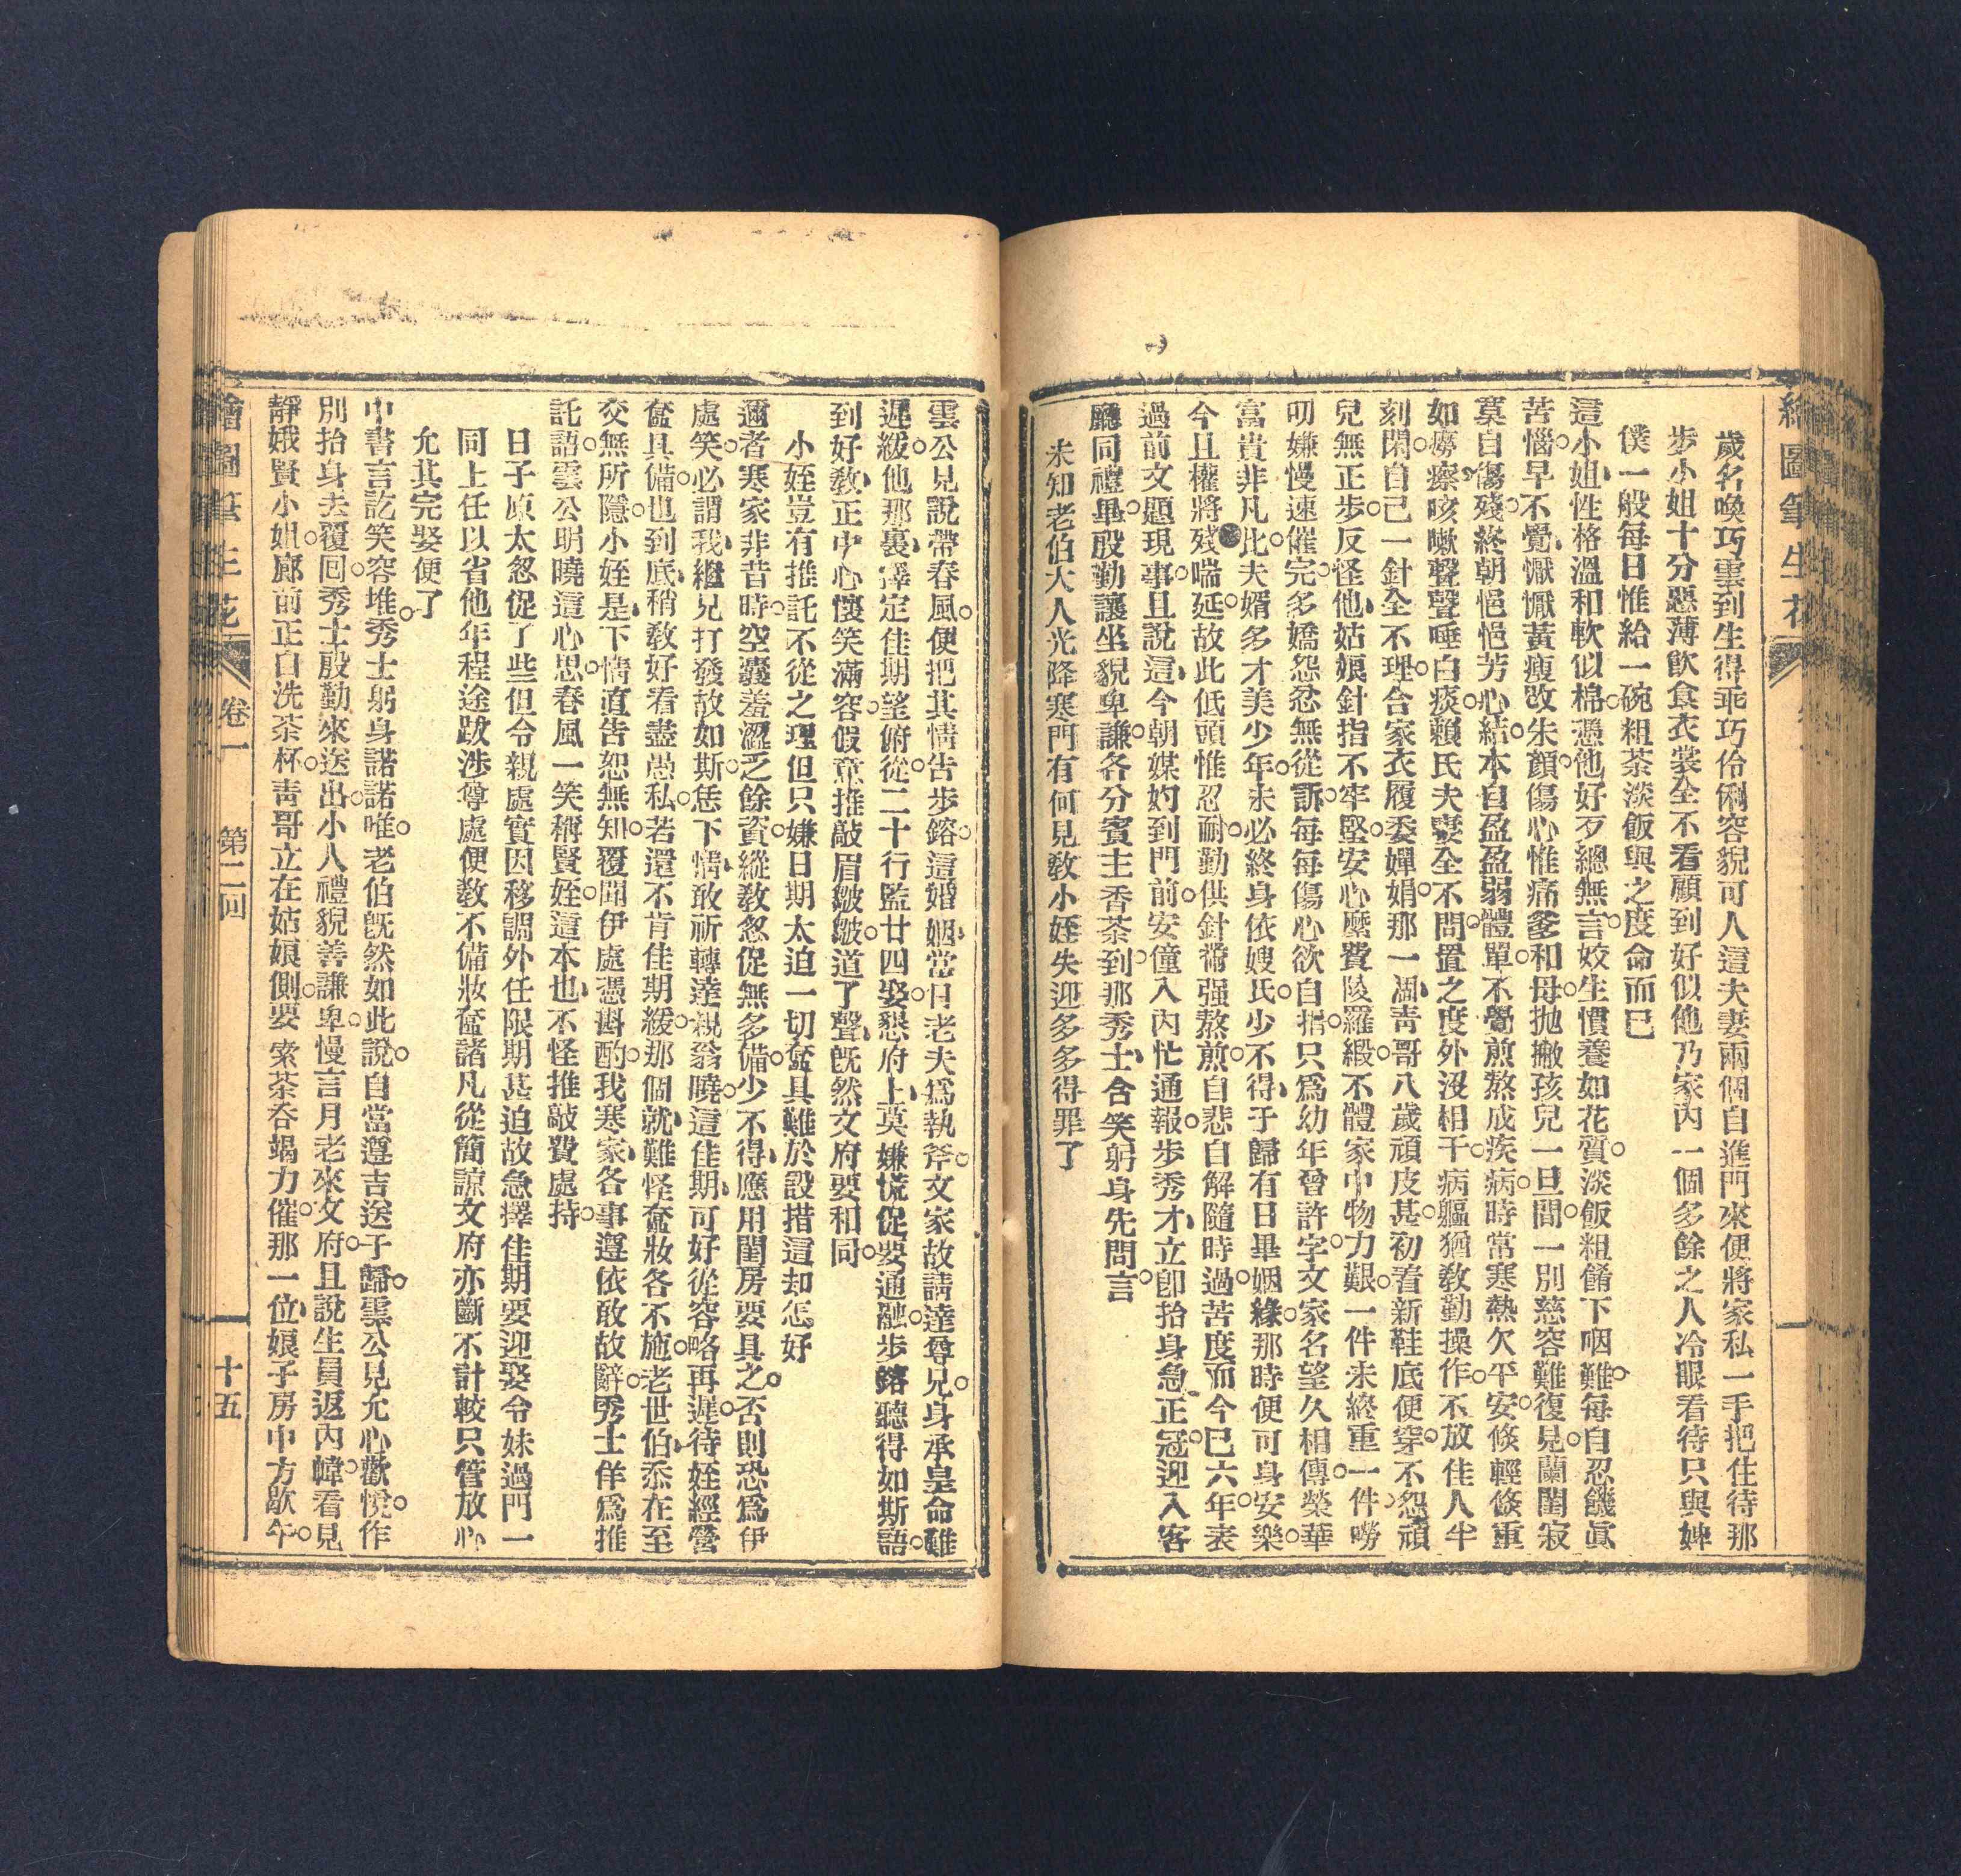 繪圖筆生花
歲名喚巧雲到生得乖巧伶俐容貌可人這夫妻兩個自進門來便將家私一手把住待那
步小姐十分惡薄飲食衣裳全不看顧到好似他乃家內一個多餘之人冷眼看待只與婢
僕一般每日惟給一碗粗茶淡飯與之度命而已
這小姐性格溫和軟似棉○憑他好歹總無言姣生慣養如花質○淡飯粗餚下咽難○每自忍饑眞
苦惱○早不覺懨懨黃瘦改朱顏○傷心惟痛爹和母○拋撇孩兒一旦間○一別慈容難復見○蘭閨寂
寞自傷殘○終朝悒悒芳心結○本自盈盈弱體單○不覺煎熬成疾病○時常寒熱欠平安○倏輕倏重
如癆瘵○咳嗽聲聲唾白痰○賴氏夫妻全不問○置之度外沒相干○病軀猶敎勤操作○不放佳人半
刻閑○自己一針全不理○合家衣履委嬋娟○那一個靑哥八歲頑皮甚○初着新鞋底便穿○不怨頑
兒無正步○反怪他姑娘針指不牢堅○安心糜費陵羅緞○不體家中物力艱○一件未終重一件○嘮
叨嫌慢速催完○多嬌怨忿無從訴○每每傷心欲自捐○只爲幼年曾許字○文家名望久相傳○榮華
富貴非凡比○夫婿多才美少年○未必終身依嫂氏○少不得于歸有日畢姻緣○那時便可身安樂○
今且權將殘喘延○故此低頭惟忍耐○勤供針黹强熬煎○自悲自解隨時過○苦度而今已六年○表
過前文題現事○且說這今朝媒妁到門前○安僮入內忙通報○步秀才立卽抬身急正冠○迎入客
廳同禮畢○殷勤讓坐貌卑謙○各分賓主香茶到○那秀士含笑躬身先問言○
未知老伯大人光降寒門有何見敎小姪失迎多多得罪了
雲公見說帶春風○便把其情告步鎔○這婚姻當日老夫爲執斧○文家故請達尊兄○身承是命難
遲緩○他那裏擇定佳期望俯從○二十行監廿四娶○懇府上莫嫌慌促要通融○步鎔聽得如斯語○
到好敎正中心懷笑滿容○假意推敲眉皺皺○道了聲旣然文府要和同○
小姪豈有推託不從之理但只嫌日期太迫一切奩具難於設措這却怎好
邇者寒家非昔時○空囊羞澀乏餘資○縱敎怱促無多備○少不得應用閨房要具之○否則恐爲伊
處笑○必謂我繼兄打發故如斯○恁下情敢祈轉達親翁曉○這佳期可好從容略再遲○待姪經營
奩具備○也到底稍敎好看盡愚私○若還不肯佳期緩○那個就難怪奩妝各不施○老世伯忝在至
交無所隱○小姪是下情直告恕無知○覆聞伊處憑斟酌○我寒家各事遵依敢故辭○秀士佯爲推
託語○雲公明曉這心思○春風一笑稱賢姪○這本也不怪推敲費處持○
日子原太怱促了些但令親處實因移調外任限期甚迫故急擇佳期要迎娶令妹過門一
同上任以省他年程途跋涉尊處便敎不備妝奩諸凡從簡諒文府亦斷不計較只管放心
允其完娶便了
中書言訖笑容堆○秀士躬身諾諾唯○老伯旣然如此說○自當遵吉送于歸○雲公見允心歡悅○作
別抬身去覆回○秀士殷勤來送出○小人禮貌善謙卑○慢言月老來文府○且說生員返內幃○看見
靜娥賢小姐○廊前正自洗茶杯○靑哥立在姑娘側○要索茶吞竭力催○那一位娘子房中方歇午○
繪圖筆生花 卷一 第二回 十五